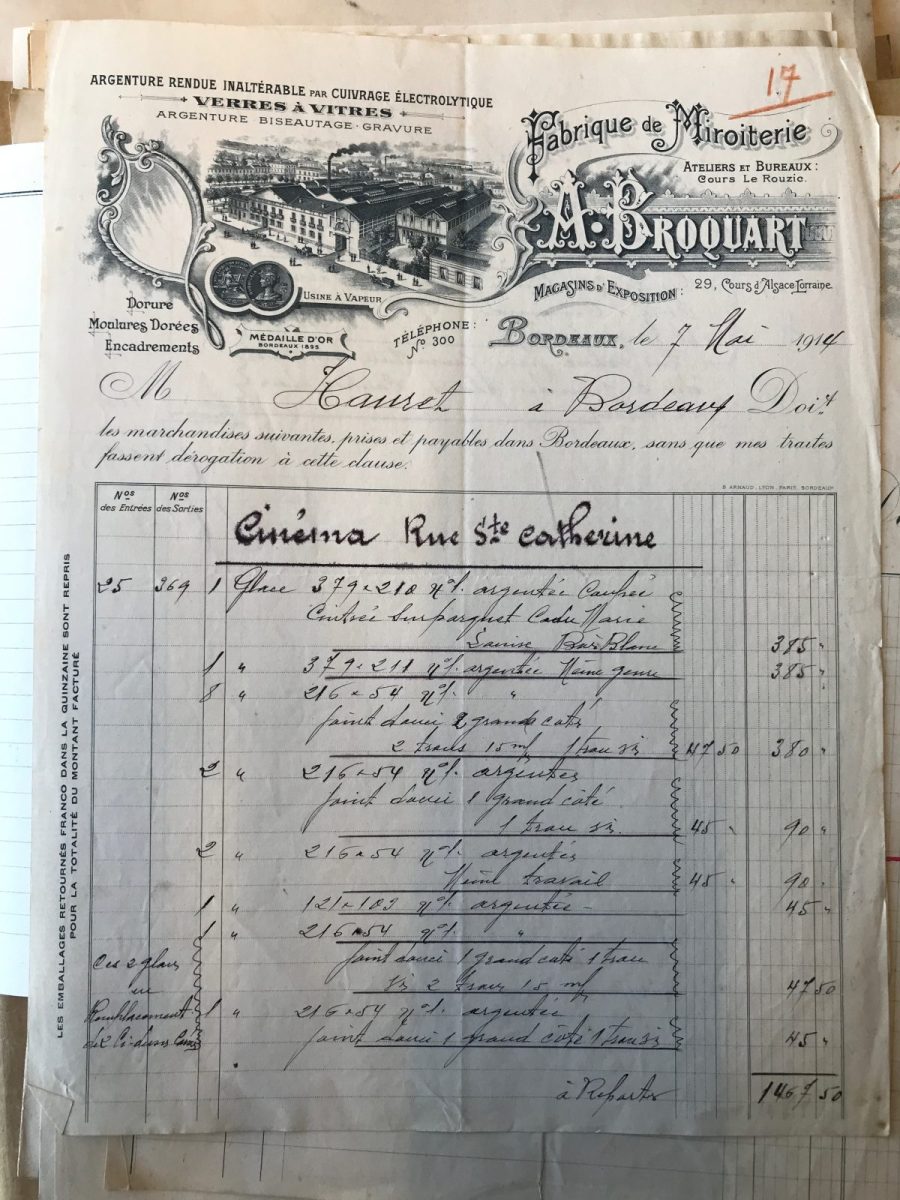 17
ARGENTURE RENDUE INALTÉRABLE PAR CUIVRAGE ÉLECTROLYTIQUE
VERRES À VITRES
ARGENTURE - BISEAUTAGE - GRAVURE
Fabrique de Miroiterie
ATELIERS ET BUREAUX:
Cours Le Rouzic.
A. BROQUART
MAGASINS D'EXPOSITION: 29, Cours d'Alsace Lorraine.
USINE À VAPEUR
Dorure
Moulures Dorées
Encadrements
MÉDAILLE D'OR
BORDEAUX 1895
TÉLÉPHONE:
No 300
BORDEAUX, le 7 Mai 1914
M Hauret à Bordeaux Doit
les marchandises suivantes, prises et payables dans Bordeaux, sans que mes traites
fassent dérogation à cette clause.
B. ARNAUD, LYON PARIS BORDEAUX
Nos des Entrées
Nos des Sorties
Cinéma Rue Ste Catherine
25 369 1 Glace 379 × 210 No 1. argentée
Cintrée sur parquet
Louise 385 "
1 " 379 × 211 No 1. argentée Même genre 385 "
8 " 216 × 54 No 1. "
joint douci 2 grands cotés
2 trous 15 m/ 1 trou vis 47 50 380 "
2 " 216 × 54 No 1. argentés
joint douci 1 grand côté
1 trou vis. 45 " 90 "
2 " 216 × 54 No 1. argentés
Même travail 45 " 90 "
1 " 121 × 103 No 1. argentée - 45 "
1 " 216 × 54 No 1. "
joint douci 1 grand coté 1 trou
vis 2 trous 15 m/ 47 50
Ces 2 glaces
en
Remplacement
de 2 Ci-dessus
1 " 216 × 54 No 1. argentée
joint douci 1 grand côté 1 trou vis 45 "
à Reporter 1467 50
LES EMBALLAGES RETOURNÉS FRANCO DANS LA QUINZAINE SONT REPRIS
POUR LA TOTALITÉ DU MONTANT FACTURÉ